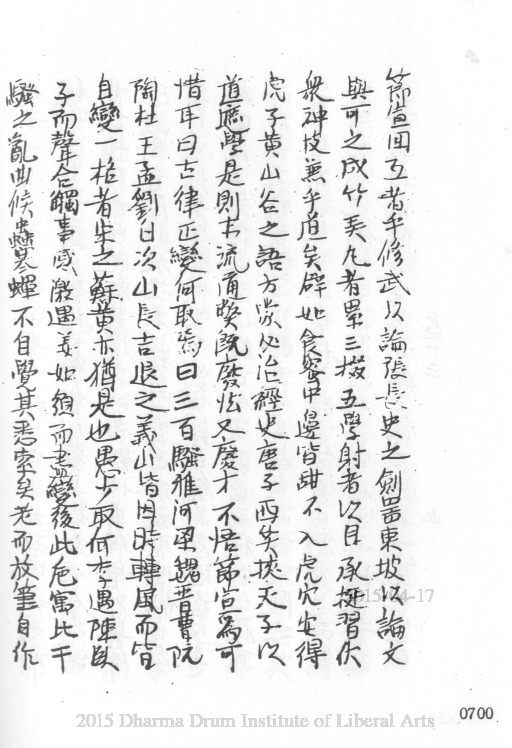 節宣回互者乎修武以論張長史之劍器東坡以論文
與可之成竹美九者累三掇五學射者次目承挺習伏
眾神技兼乎道矣辟如食蜜中邊皆甜不入虎穴安得
虎子黃山谷之語方崇必治經史唐子西矣挾天子以
道應學是則才流通獎既廢怯又廢才不悟節宣為可
惜耳曰古律正變何取焉曰三百騷雅河梁魏晉曹阮
陶杜王孟劉白次山長吉退之義山皆因時轉風而皆
自變一格者宋之蘇黃亦猶是也愚者取何李遇陳臥
子而聲合觸事感激遇姜如須而盡變後此卮寓比干
騷之亂曲候蟲寒蟬不自覺其悉索矣老而放筆自作
2015/04-17
0700
2015 Dharma Drum Institute of Liberal Arts